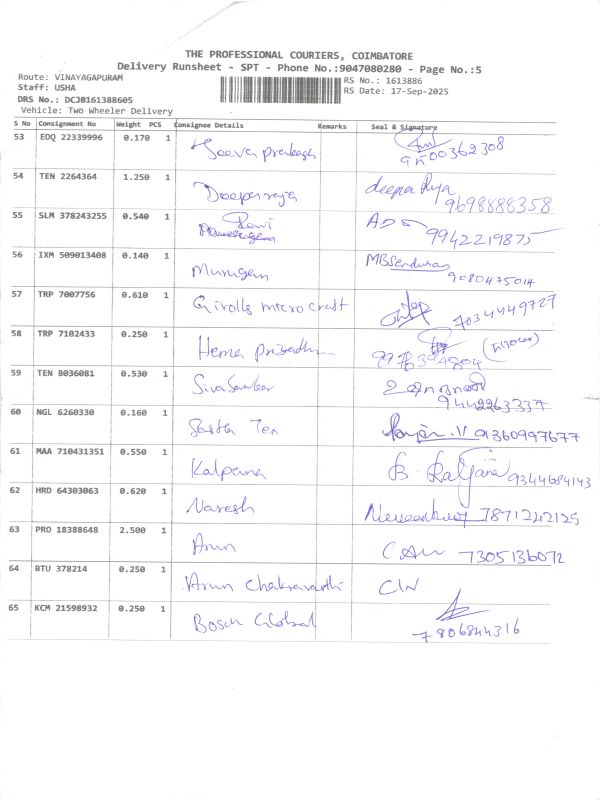 THE PROFESSIONAL COURIERS, COIMBATORE
Delivery Runsheet - SPT - Phone No.:9047080280 - Page No.:5
Route: VINAYAGAPURAM
Staff: USHA
DRS No.: DCJB161388605
Vehicle: Two Wheeler Delivery
RS No.: 1613886
RS Date: 17-Sep-2025
S No Consignment No Weight PCS Consignee Details Remarks Seal & Signature
53 EDQ 22339996 0.170 1 Jeeva prakash 9500362308
54 TEN 2264364 1.250 1 Deeparaja deepa Raja 9698888358
55 SLM 378243255 0.540 1 Ravi 9942219875
56 IXM 509013408 0.140 1 Murugan MBSenduran 9080475014
57 TRP 7007756 0.610 1 Girolls micro craft 7034449727
58 TRP 7102433 0.250 1 Hema
59 TEN 8036081 0.530 1 Sivasankar 9442263337
60 NGL 6260330 0.160 1 Sastha Tex 91360997677
61 MAA 710431351 0.550 1 Kalpana B. Kalpana 9344684143
62 HRD 64303063 0.620 1 Naresh 7871242125
63 PRO 18388648 2.500 1 Arun 7305136072
64 BTU 378214 0.250 1 Arun Chakravarthi
65 KCM 21598932 0.250 1 Bosch Global 7806844316